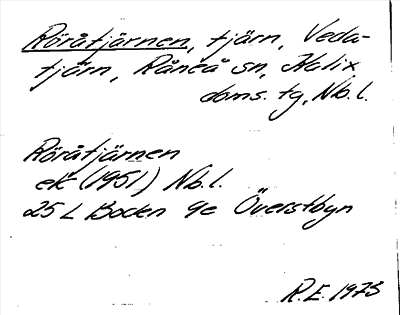 Röråtjärnen, tjärn, Veda-
tjärn, Råneå sn, Kalix
doms. tg, Nb. l.
Röråtjärnen
ek (1951) Nb. l.
25 L Boden 9e Överstbyn
R.E. 1973